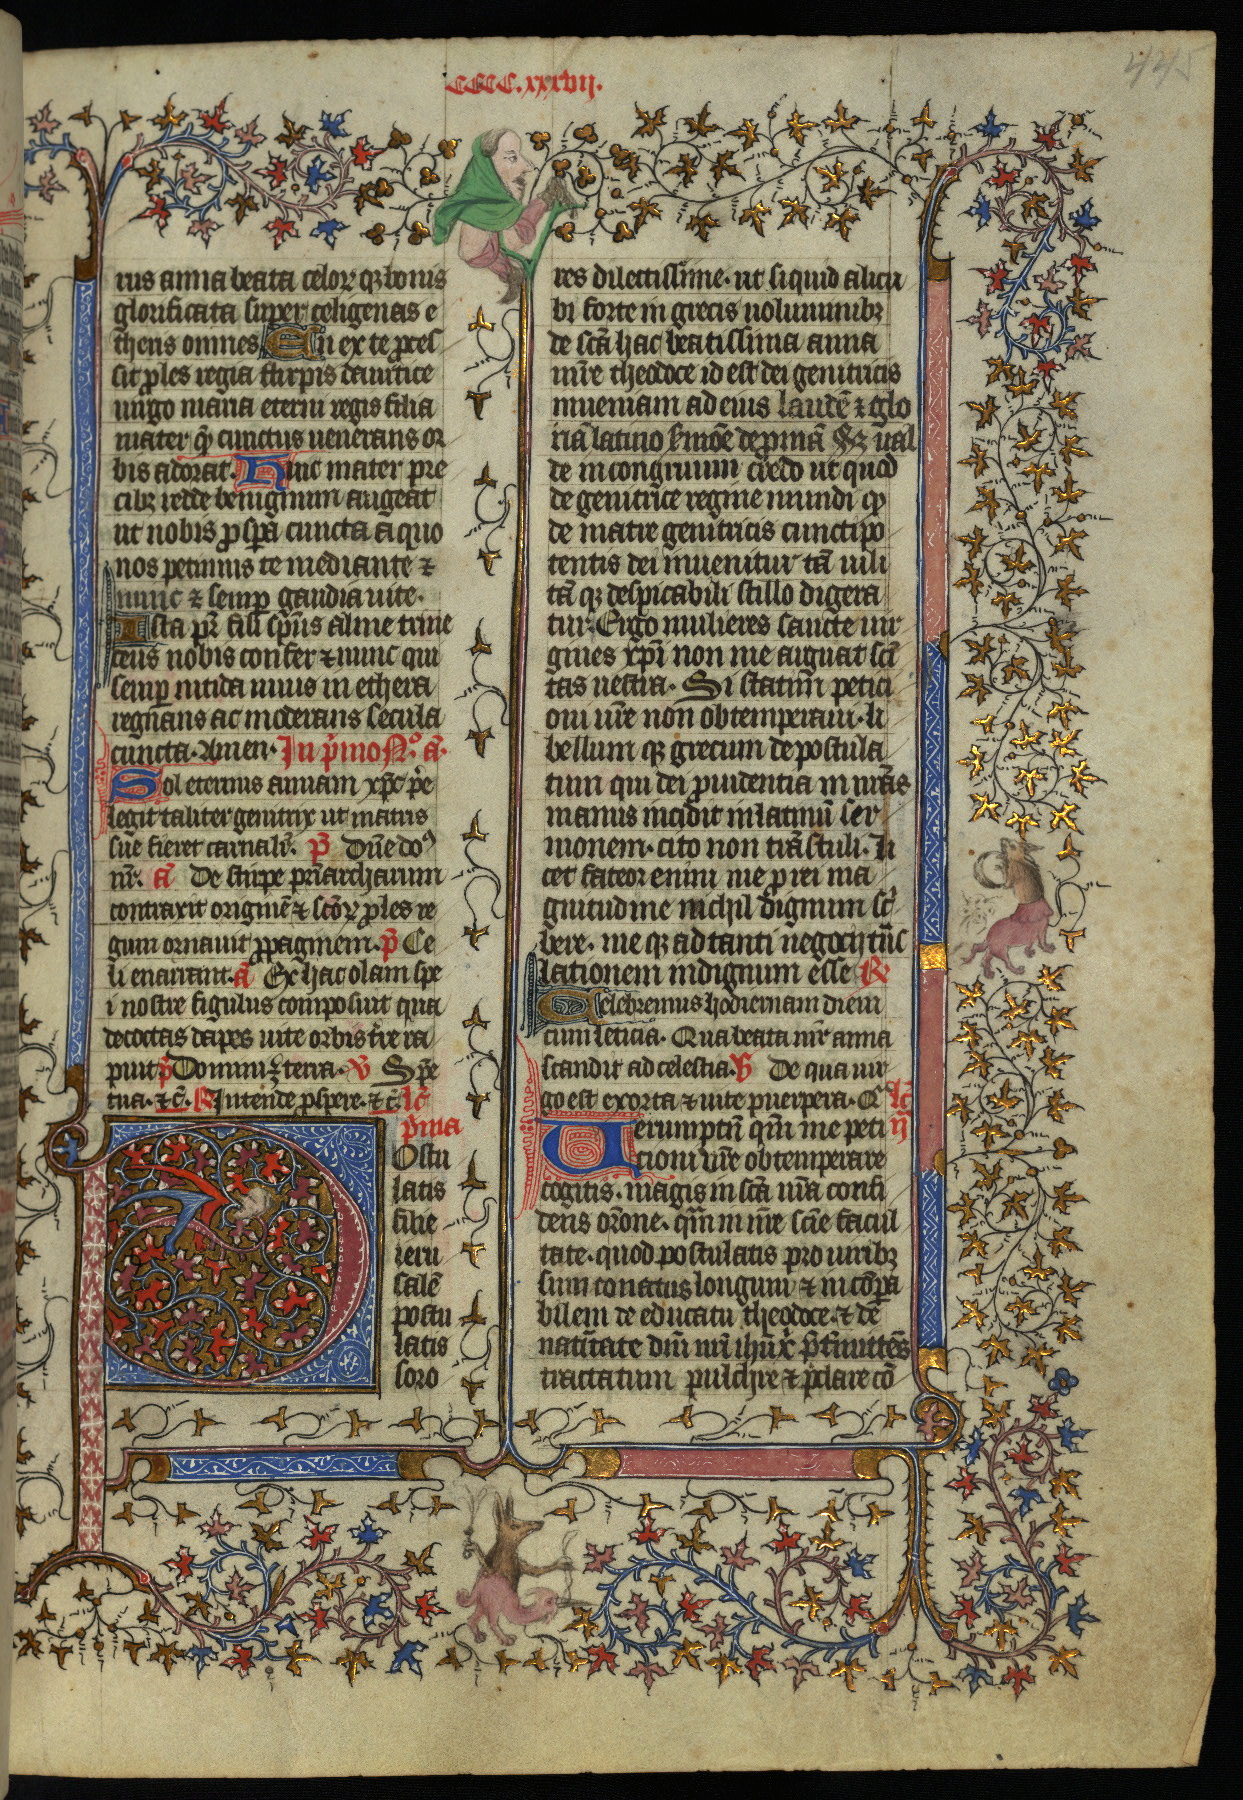 CCCC.xxxvii.
445
rus anna beata celoꝝ qꝫ bonis
glorificata super celigenas e
thens omnes En ex te ꝓces
sit ꝓles regia stirpis dauitice
uirgo maria eterni regis filia
mater qͣ cunctus uenerans or
bis adorat. Hinc mater pre
cibꝫ redde benignum augeat
ut nobis ꝓspa cuncta a quo
nos petimus te mediante ⁊
nunc ⁊ semp gaudia uite.
Ista pr̄ fili sp̄us alme trine
deus nobis confer ⁊ nunc qui
semp nitida uiuis in ethera
regnans ac moderans secula
cuncta. Amen. In p̄mo Nº. a͞.
Sol eternus annam xp̄c p̄e
legit taliter genitrix ut matris
sue fieret carnalis. p̄ Dn̄e do
nr̄. a͞ De stirpe priarcharum
contraxit originē ⁊ sc̄oꝝ ꝓles re
gum ornauit ꝓpaginem. p̄ Ce
li enarrant. a͞ Ex hac olam spe
i nostre figulus composuit qua
decoctas dapes uite orbis fr̄e ra
puit p̄ Domini ē terra. v̄ Spe
tua. ⁊c̄. R̄ Intende ꝓspere. ⁊c̄ lc̄
p̄ma
Postu
latis
filie
ieru
salē
postu
latis
soro
res dilectissime. ut siquid alicu
bi forte in grecis uoluminibꝫ
de sc̄a hac beatissima anna
mr̄e theodoce id est dei genitricis
inueniam ad eius laudē ⁊ glo
riā latino s̄mōe depromā Sꝫ ual
de incongruum credo ut quod
de genitrice regine mundi qͦ
de matre genitricis cunctipo
tentis dei inuenitur tā uili
tā qꝫ despicabili stillo digera
tur. Ergo mulieres sancte uir
gines xp̄i non me arguat sc̄i
tas uestra. Si statim petici
oni ur̄e non obtemperaui. li
bellum qꝫ grecum depostula
tum qui dei ꝓuidentia in nr̄as
manus incidit in latinū ser
monem. cito non trāstuli. Li
cet fateor enim me ꝓ rei ma
gnitudine nichil dignum sc̄
bere. me qꝫ ad tanti negocij trās
lationem indignum esse R̄
Celebremus hodiernam diem
cum leticia. Qua beata mr̄ anna
scandit ad celestia. v̄ De qua uir
go est exorta ⁊ uite puerpera. Q lc̄
Uerumptn̄ qm̄ me peti ij
cioni ur̄e obtemperare
cogitis. magis in sc̄a ur̄a confi
dens or̄one. qm̄ in me sc̄ie facul
tate. quod postulatis pro uiribꝫ
sum conatus longum ⁊ incōpa
bilem de educatu theodoce. ⁊ de
natiuitate dn̄i nr̄i ihū xp̄i p̄t̄mittēs
tractatum pulchre ⁊ p̄clare cō